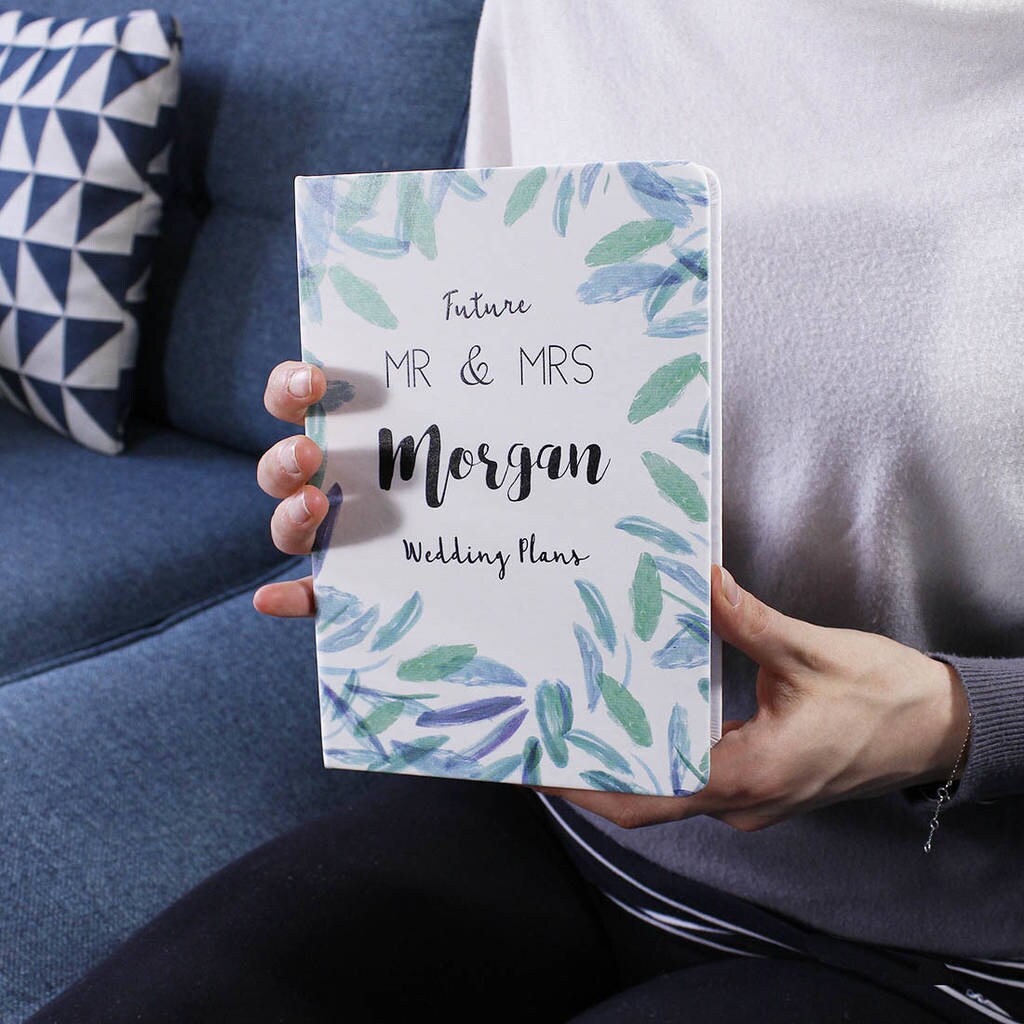 Future
MR & MRS
Morgan
Wedding Plans